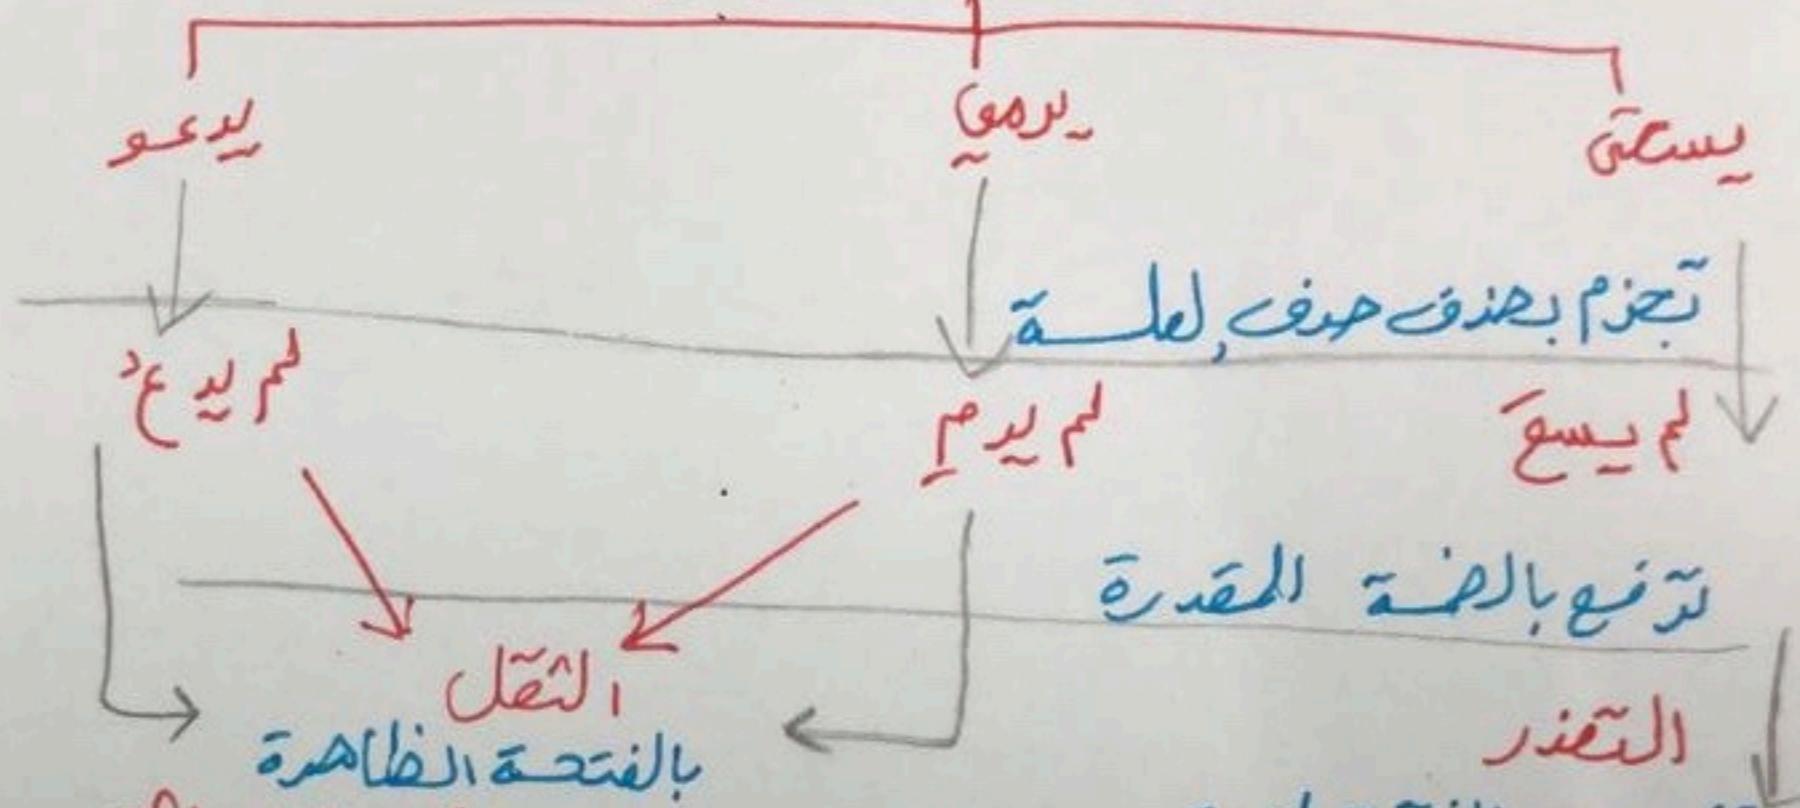 يسعى يرمي يدعو
تجزم بحذف حرف العلة
لم يسعَ لم يرمِ لم يدعُ
ترفع بالضمة المقدرة
التعذر الثقل
بالفتحة الظاهرة